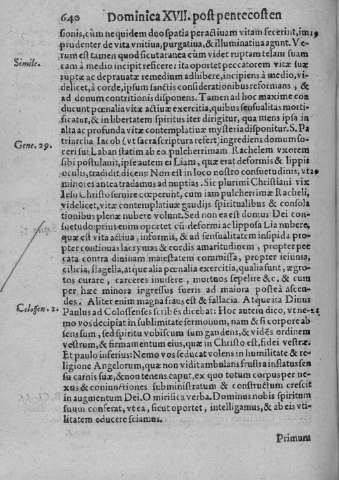 640 Dominica XVII. post pentecosten
sionis, cùm ne quidem duo spatia peractiuam vitam fecerint, im-
prudenter de vita vnitiua, purgatiua, & illuminatiua agunt. Ve-
rum est tamen quod sicut aranea cùm videt ruptam telam suam
Simile. eam à medio incipit reficere: ita oportet peccatorem vitæ suæ
ruptæ ac deprauatæ remedium adhibere, incipiens à medio, vi-
delicet, à corde, ipsum sanctis considerationibus reformans, &
ad donum contritionis disponens. Tamen ad hoc maxime con
ducunt pœnalia vitæ actiuæ exercitia, quibus sensualitas morti-
ficatur, & in libertatem spiritus iter dirigitur, qua mens ipsa in
alta ac profunda vitæ contemplatiuæ mysteria disponitur. S. Pa
Gene. 29. triarcha Iacob (vt sacra scriptura refert) ingrediens domum so-
ceri sui Laban statim ab eo pulcherrimam Rachelem vxorem
sibi postulauit, ipse autem ei Liam, quæ erat deformis & lippis
oculis, tradidit dicens: Non est in loco nostro consuetudinis, vt
minores antea tradamus ad nuptias. Sic plurimi Christiani vix
Iesu Christo seruire cœperunt, cum iam pulcherrimæ Racheli,
videlicet, vitæ contemplatiuæ gaudijs spiritualibus & consola
tionibus plenæ nubere volunt. Sed non ea est domus Dei con-
suetudo: prius enim oportet cū deformi ac lipposa Lia nubere,
quæ est vita actiua, informis, & ad sensualitatem insipida pro-
pter continuas lacrymas & cordis amaritudinem, propter pec
cata contra diuinam maiestatem commissa, propter ieiunia,
cilicia, flagella, atque alia pœnalia exercitia, qualia sunt, ægro-
tos curare, carceres inuisere, mortuos sepelire &c. & cum
per hæc minora ingressus fueris ad maiora poste à ascen-
des. Aliter enim magna fraus est & fallacia. Atque ita Diuus
Colossen. 2. Paulus ad Colossenses scribēs dicebat: Hoc autem dico, vt ne-
mo vos decipiat in sublimitate sermonum, nam & si corpore ab
sens sum, sed spiritu vobiscum sum gaudens, & vidēs ordinem
vestrum, & firmamentum eius, quæ in Christo est, fidei vestræ.
Et paulo inferius: Nemo vos seducat volens in humilitate & re-
ligione Angelorum, quæ non vidit ambulans frustra inflatus sen
su carnis suæ, & non tenens caput, ex quo totum corpus per ne-
xus & coniunctiones subministratum & constructum crescit
in augmentum Dei. O mirifica verba. Dominus nobis spiritum
suum conferat, vt ea, sicut oportet, intelligamus, & ab eis vti-
litatem educere sciamus.
Primum